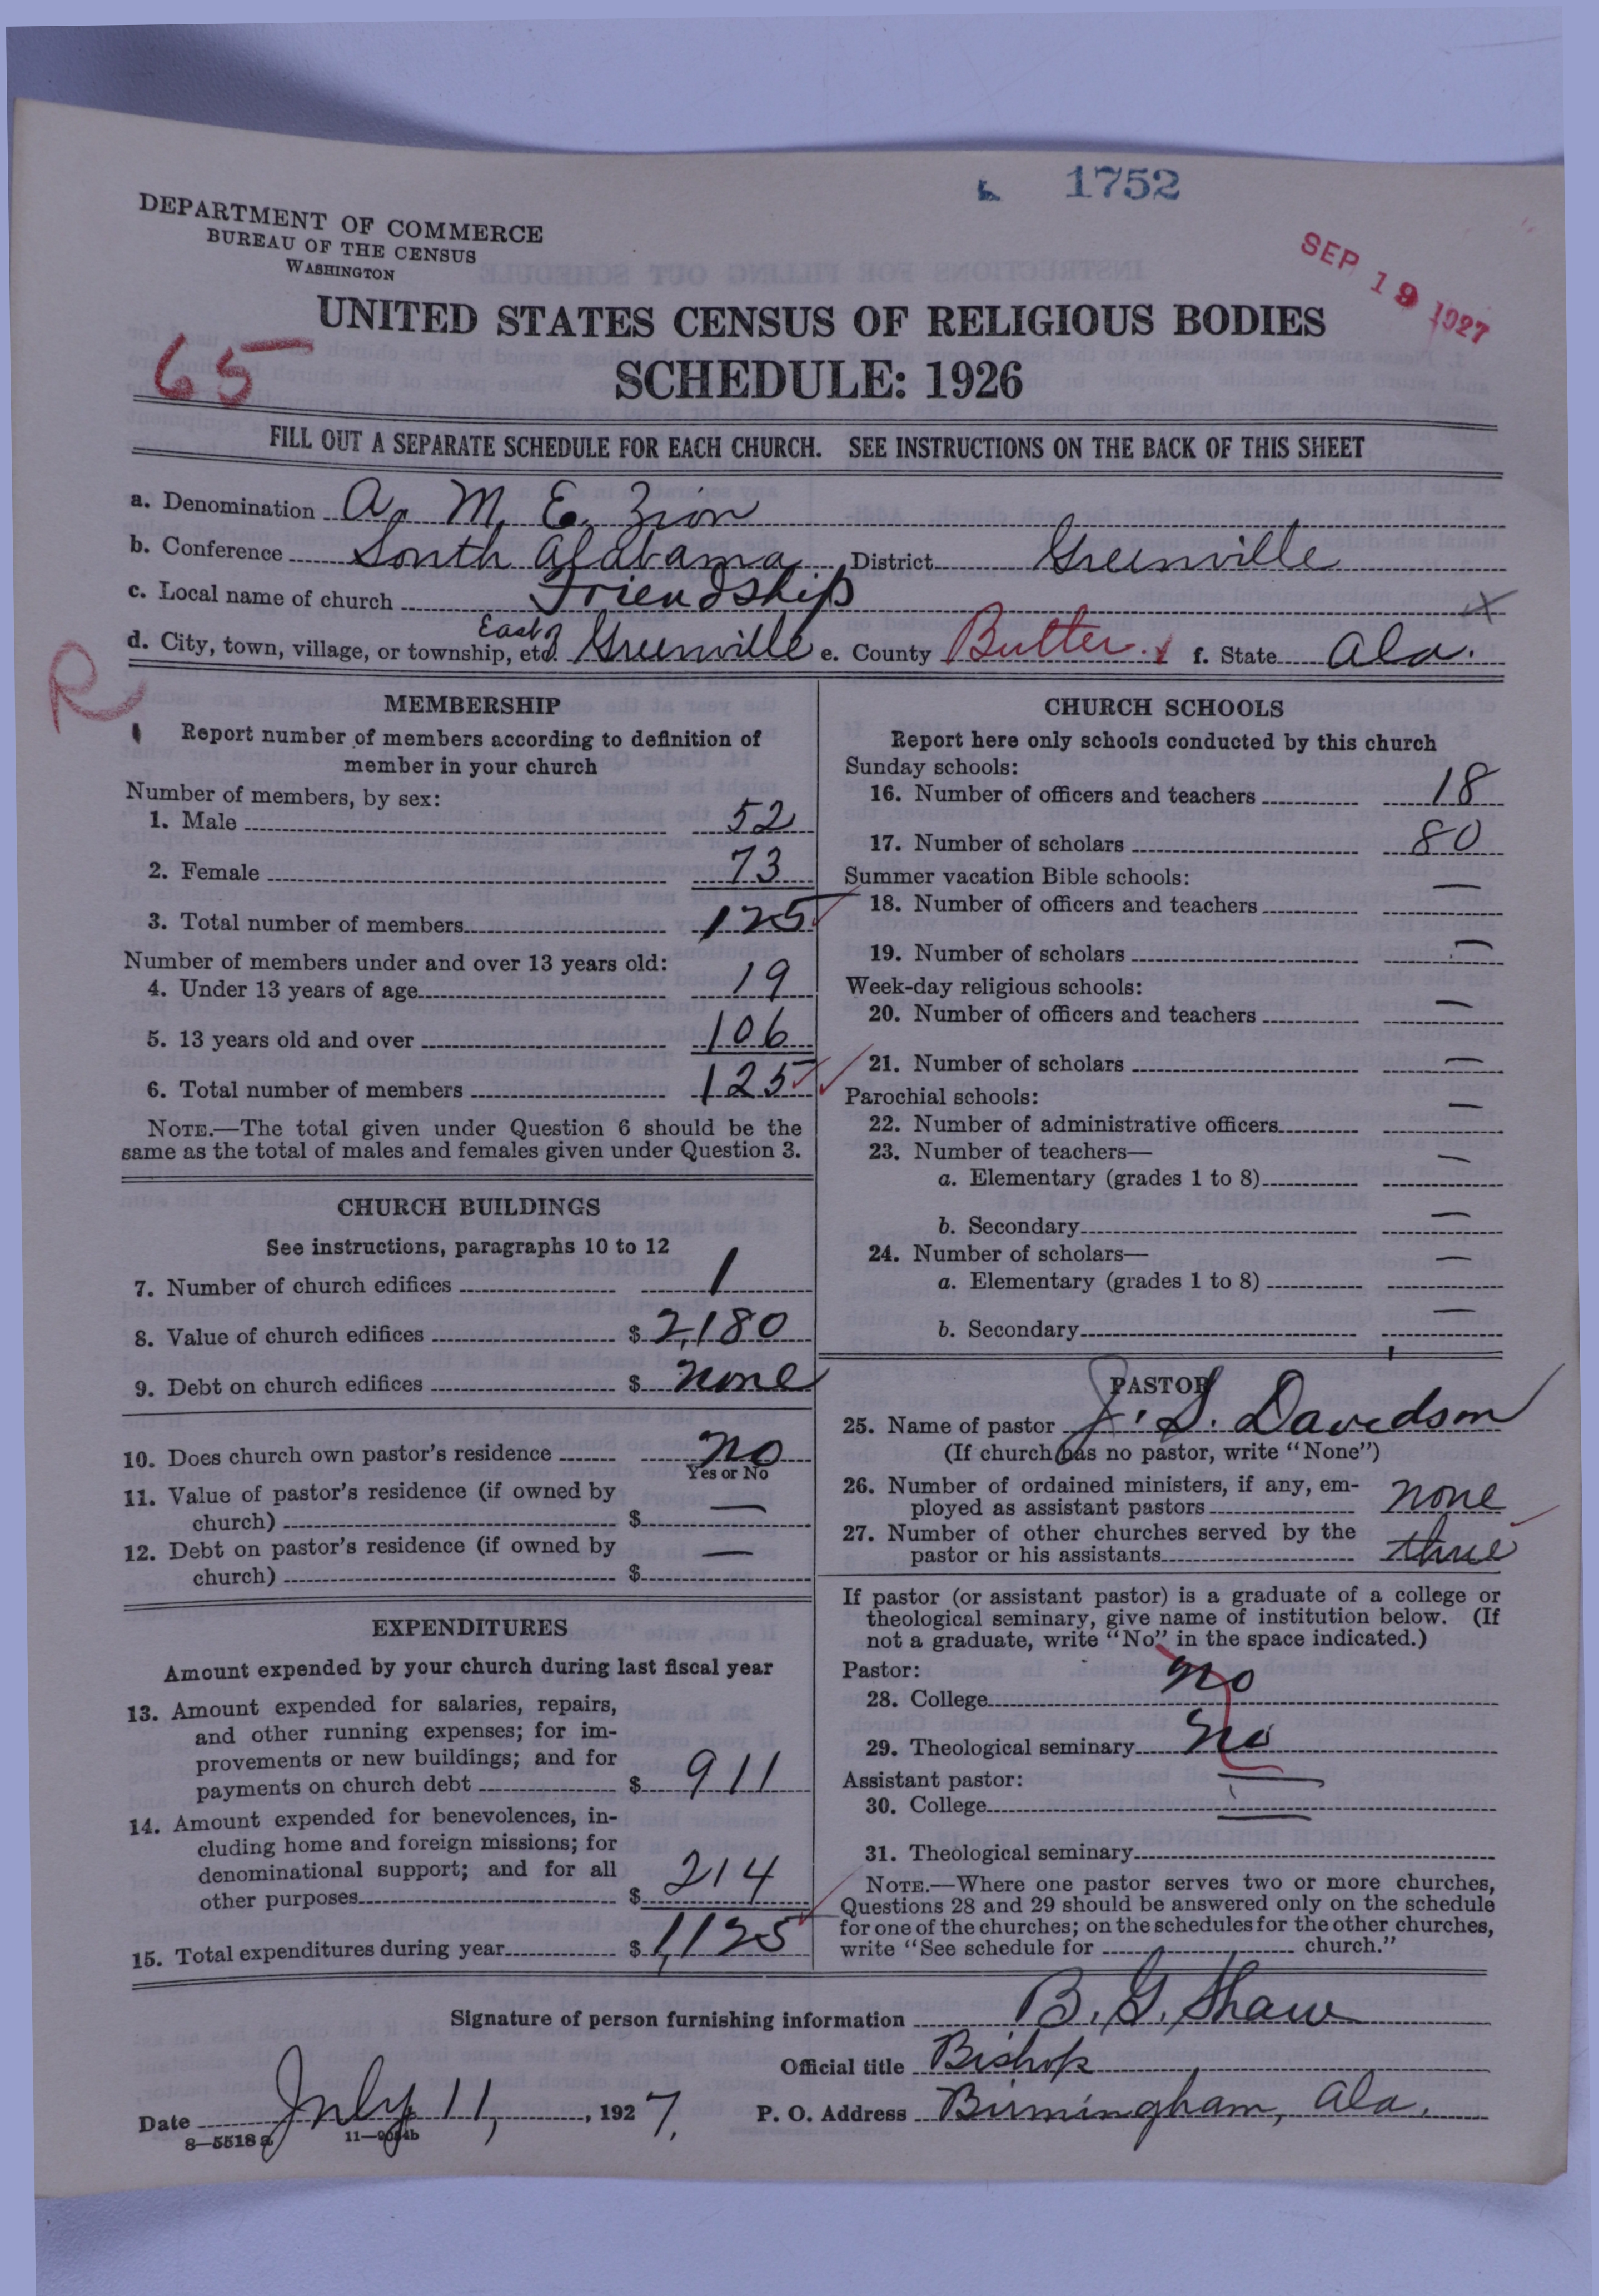 1752
DEPARTMENT OF COMMERCE
BUREAU OF THE CENSUS
WASHINGTON
SEP 19 1927
UNITED STATES CENSUS OF RELIGIOUS BODIES
65
SCHEDULE: 1926
FILL OUT A SEPARATE SCHEDULE FOR EACH CHURCH. SEE INSTRUCTIONS ON THE BACK OF THIS SHEET
a. Denomination A. M. E. Zion
b. Conference South Alabama District Greenville
c. Local name of church Friendship
d. City, town, village, or township, etc. East of Greenville e. County Butler f. State Ala.
R
MEMBERSHIP
Report number of members according to definition of
member in your church
Number of members, by sex:
1. Male 52
2. Female 73
3. Total number of members 125
Number of members under and over 13 years old:
4. Under 13 years of age 19
5. 13 years old and over 106
6. Total number of members 125
NOTE.—The total given under Question 6 should be the
same as the total of males and females given under Question 3.
CHURCH BUILDINGS
See instructions, paragraphs 10 to 12
7. Number of church edifices 1
8. Value of church edifices $ 2,180
9. Debt on church edifices $ none
10. Does church own pastor's residence no
Yes or No
11. Value of pastor's residence (if owned by
church) $ —
12. Debt on pastor's residence (if owned by
church) $ —
EXPENDITURES
Amount expended by your church during last fiscal year
13. Amount expended for salaries, repairs,
and other running expenses; for im-
provements or new buildings; and for
payments on church debt $ 911
14. Amount expended for benevolences, in-
cluding home and foreign missions; for
denominational support; and for all
other purposes $ 214
15. Total expenditures during year $ 1,125
CHURCH SCHOOLS
Report here only schools conducted by this church
Sunday schools:
16. Number of officers and teachers 18
17. Number of scholars 80
Summer vacation Bible schools:
18. Number of officers and teachers —
19. Number of scholars —
Week-day religious schools:
20. Number of officers and teachers —
21. Number of scholars —
Parochial schools:
22. Number of administrative officers —
23. Number of teachers—
a. Elementary (grades 1 to 8) —
b. Secondary —
24. Number of scholars—
a. Elementary (grades 1 to 8) —
b. Secondary —
PASTOR
25. Name of pastor J. S. Davidson
(If church has no pastor, write "None")
26. Number of ordained ministers, if any, em-
ployed as assistant pastors none
27. Number of other churches served by the
pastor or his assistants three
If pastor (or assistant pastor) is a graduate of a college or
theological seminary, give name of institution below. (If
not a graduate, write "No" in the space indicated.)
Pastor:
28. College no
29. Theological seminary no
Assistant pastor:
30. College —
31. Theological seminary
NOTE.—Where one pastor serves two or more churches,
Questions 28 and 29 should be answered only on the schedule
for one of the churches; on the schedules for the other churches,
write "See schedule for church."
Signature of person furnishing information B. G. Shaw
Official title Bishop
Date July 11, 1927. P. O. Address Birmingham, Ala.
8—5518a 11—9034b